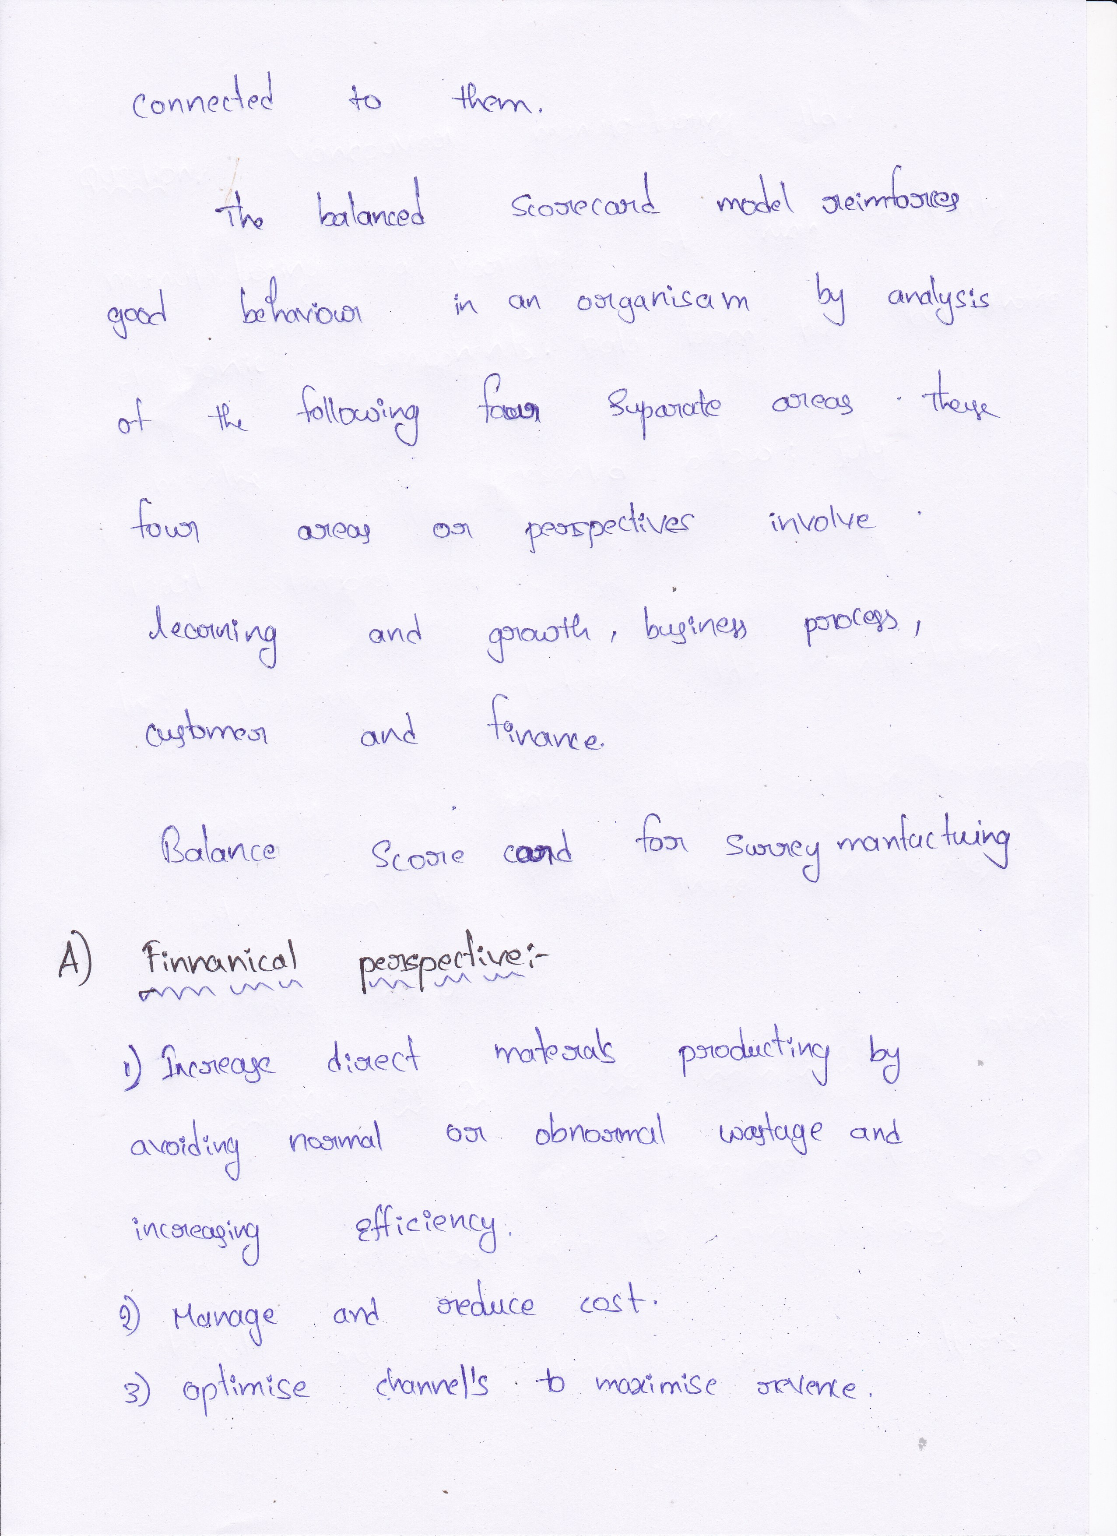 connected to them.
The balanced scorecard model reimforces
good behaviour in an organisam by analysis
of the following four Suparate areas. These
four areas or perspectives involve
learning and growth, business process,
customer and finance.
Balance Score card for Surrey manfactuing
A) Finnanical perspective:-
1) Increase direct materals producting by
avoiding normal or obnormal wastage and
increasing efficiency.
2) Manage and reduce cost.
3) optimise channel's to maximise revence.